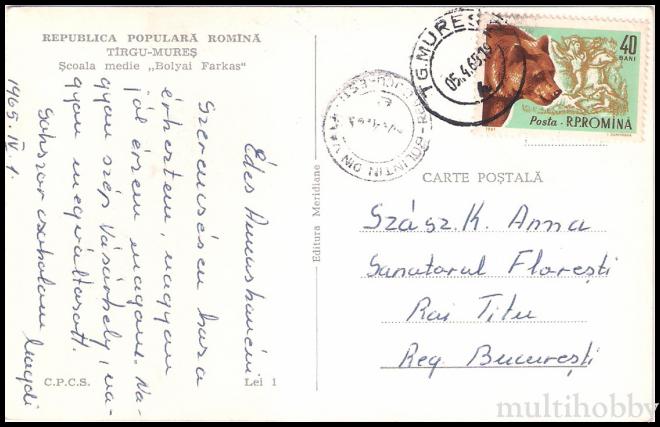 REPUBLICA POPULARĂ ROMÎNĂ
TÎRGU-MUREȘ
Școala medie „Bolyai Farkas"
Édes Annuskáném
Szerencsésen haza
érkeztem, nagyon
jól érzem magam. Na-
gyon szép Vásárhely, na-
gyon megváltozott.
Sokszor csókolom Magdi
1965. IV. 1.
C.P.C.S.
Lei 1
Editura Meridiane
TG. MUREȘ
05.4.65.19
BOLINTIN DIN VALE
40
BANI
Posta · R.P.ROMÎNĂ
CARTE POȘTALĂ
Szász. K. Anna
Sanatorul Florești
Rai Titu
Reg. București
multihobby